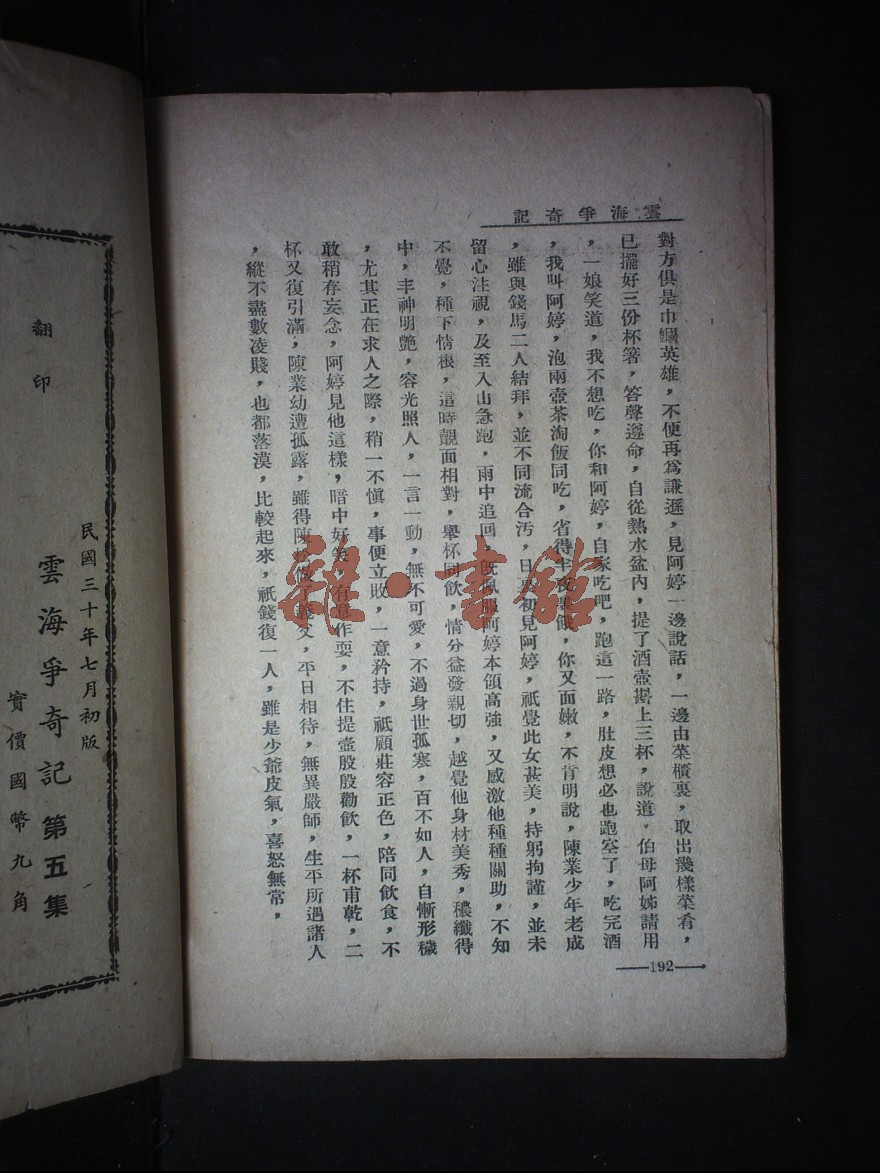 雲海爭奇記
對方俱是巾幗英雄，不便再爲謙遜，見阿婷一邊說話，一邊由菜櫃裏，取出幾樣菜肴，
已擺好三份杯箸，答聲遵命，自從熱水盆內，提了酒壺斟上三杯，說道，伯母阿姊請用
，一娘笑道，我不想吃，你和阿婷，自家吃吧，跑這一路，肚皮想必也跑空了，吃完酒
，我叫阿婷，泡兩壺茶淘飯同吃，省得半夜餓，你又面嫩，不肯明說，陳業少年老成
，雖與錢馬二人結拜，並不同流合污，日初見阿婷，祇覺此女甚美，持躬拘謹，並未
留心注視，及至入山急跑，雨中追回，旣佩服阿婷本領高強，又感激他種種關助，不知
不覺，種下情根，這時覿面相對，舉杯同飲，情分益發親切，越覺他身材美秀，穠纖得
中，丰神明艷，容光照人，一言一動，無不可愛，不過身世孤寒，百不如人，自慚形穢
，尤其正在求人之際，稍一不慎，事便立敗，一意矜持，祇顧莊容正色，陪同飲食，不
敢稍存妄念，阿婷見他這樣，暗中好笑，有意作耍，不住提壺殷殷勸飲，一杯甫乾，二
杯又復引滿，陳業幼遭孤露，雖得陳做了義父，平日相待，無異嚴師，生平所遇諸人
，縱不盡數凌賤，也都落漠，比較起來，祇錢復一人，雖是少爺皮氣，喜怒無常，
192
民國三十年七月初版
雲海爭奇記 第五集
實價國幣九角
翻印
雜·書館